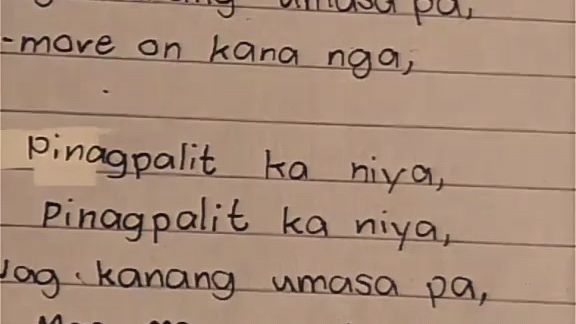 umasa pa,
-move on kana nga,
Pinagpalit ka niya,
Pinagpalit ka niya,
kanang umasa pa,